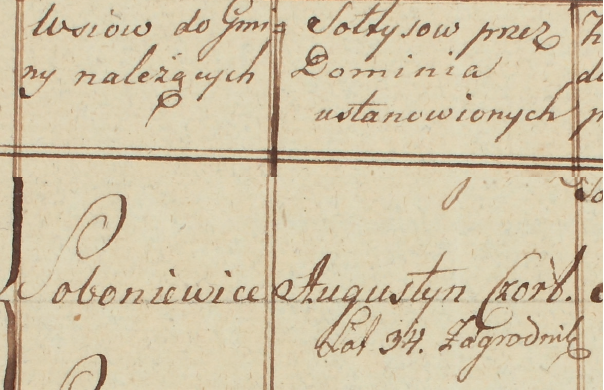 Wsiow do Gmi=
ny należących
Sołtysow przez
Dominia
ustanowionych
Soboniewice
Augustyn Czort.
Lat 34. Zagrodnik